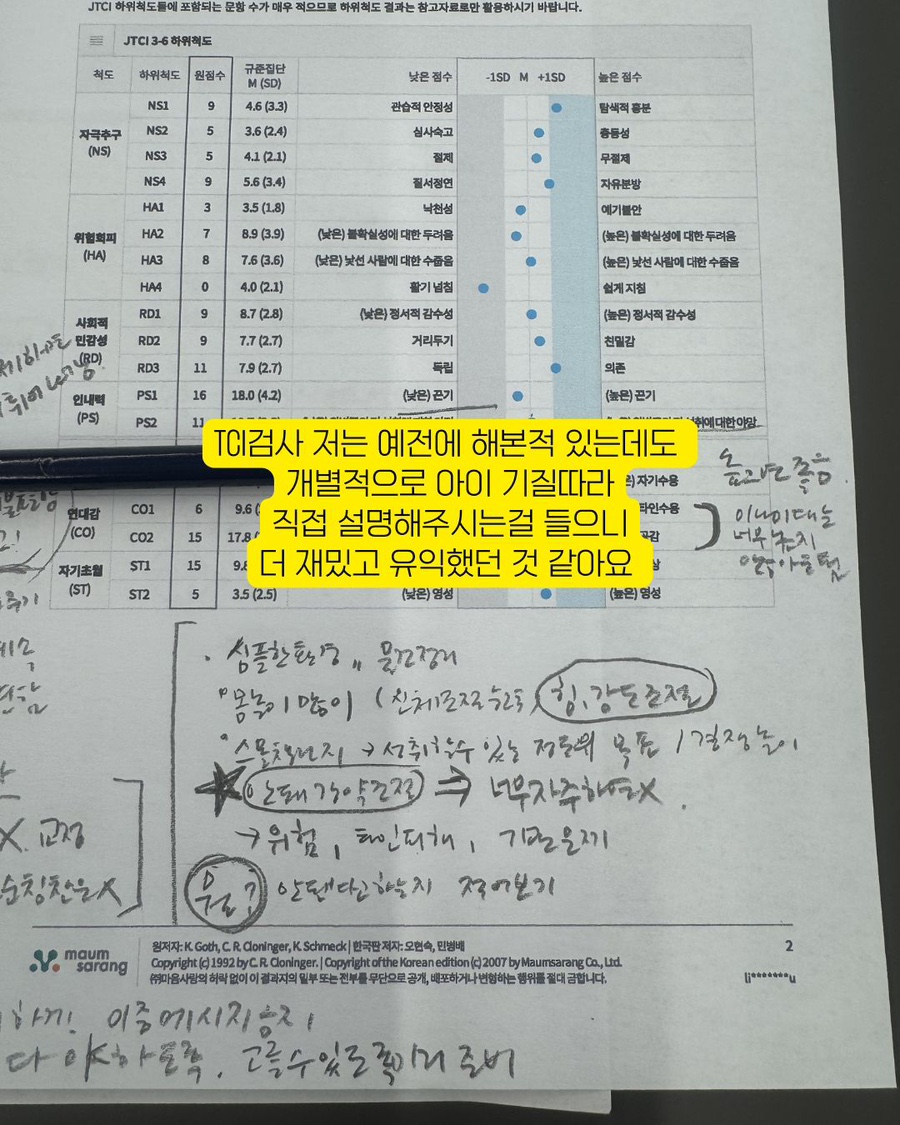 JTCI 하위척도들에 포함되는 문항 수가 매우 적으므로 하위척도 결과는 참고자료로만 활용하시기 바랍니다.
JTCI 3-6 하위척도
척도 하위척도 원점수 규준집단 M (SD) 낮은 점수 -1SD M +1SD 높은 점수
자극추구 (NS)
NS1 9 4.6 (3.3) 관습적 안정성 탐색적 흥분
NS2 5 3.6 (2.4) 심사숙고 충동성
NS3 5 4.1 (2.1) 절제 무절제
NS4 9 5.6 (3.4) 질서정연 자유분방
위험회피 (HA)
HA1 3 3.5 (1.8) 낙천성 예기불안
HA2 7 8.9 (3.9) (낮은) 불확실성에 대한 두려움 (높은) 불확실성에 대한 두려움
HA3 8 7.6 (3.6) (낮은) 낯선 사람에 대한 수줍음 (높은) 낯선 사람에 대한 수줍음
HA4 0 4.0 (2.1) 활기 넘침 쉽게 지침
사회적 민감성 (RD)
RD1 9 8.7 (2.8) (낮은) 정서적 감수성 (높은) 정서적 감수성
RD2 9 7.7 (2.7) 거리두기 친밀감
RD3 11 7.9 (2.7) 독립 의존
인내력 (PS)
PS1 16 18.0 (4.2) (낮은) 끈기 (높은) 끈기
PS2 11 성취에 대한 야망
TCI검사 저는 예전에 해본적 있는데도
개별적으로 아이 기질따라
직접 설명해주시는걸 들으니
더 재밌고 유익했던 것 같아요
자기수용
연대감 (CO)
CO1 6 9.6 타인수용
CO2 15 17.8 공감
자기초월 (ST)
ST1 15 9.8
ST2 5 3.5 (2.5) (낮은) 영성 (높은) 영성
높으면 좋음.
이 나이대는
너무 높지
않아도 됨
· 심플한 환경, 물건정리
· 몸놀이 많이 (신체조절 힘, 강도조절
· 스몰챌린지 → 성취할 수 있는 정도의 목표 / 경쟁놀이
안돼 강약조절 ⇒ 너무 자주하면 X.
→ 위험, 타인피해, 기관을
안된다 하는지 적어보기
X. 교정
maum sarang
원저자: K. Goth, C. R. Cloninger, K. Schmeck | 한국판 저자: 오현숙, 민병배
Copyright (c) 1992 by C. R. Cloninger. | Copyright of the Korean edition (c) 2007 by Maumsarang Co., Ltd.
㈜마음사랑의 허락 없이 이 결과지의 일부 또는 전부를 무단으로 공개, 배포하거나 변형하는 행위를 절대 금합니다.
2
li*******u
하게! 이중메시지 금지!
고를 수 있도록 미리 준비